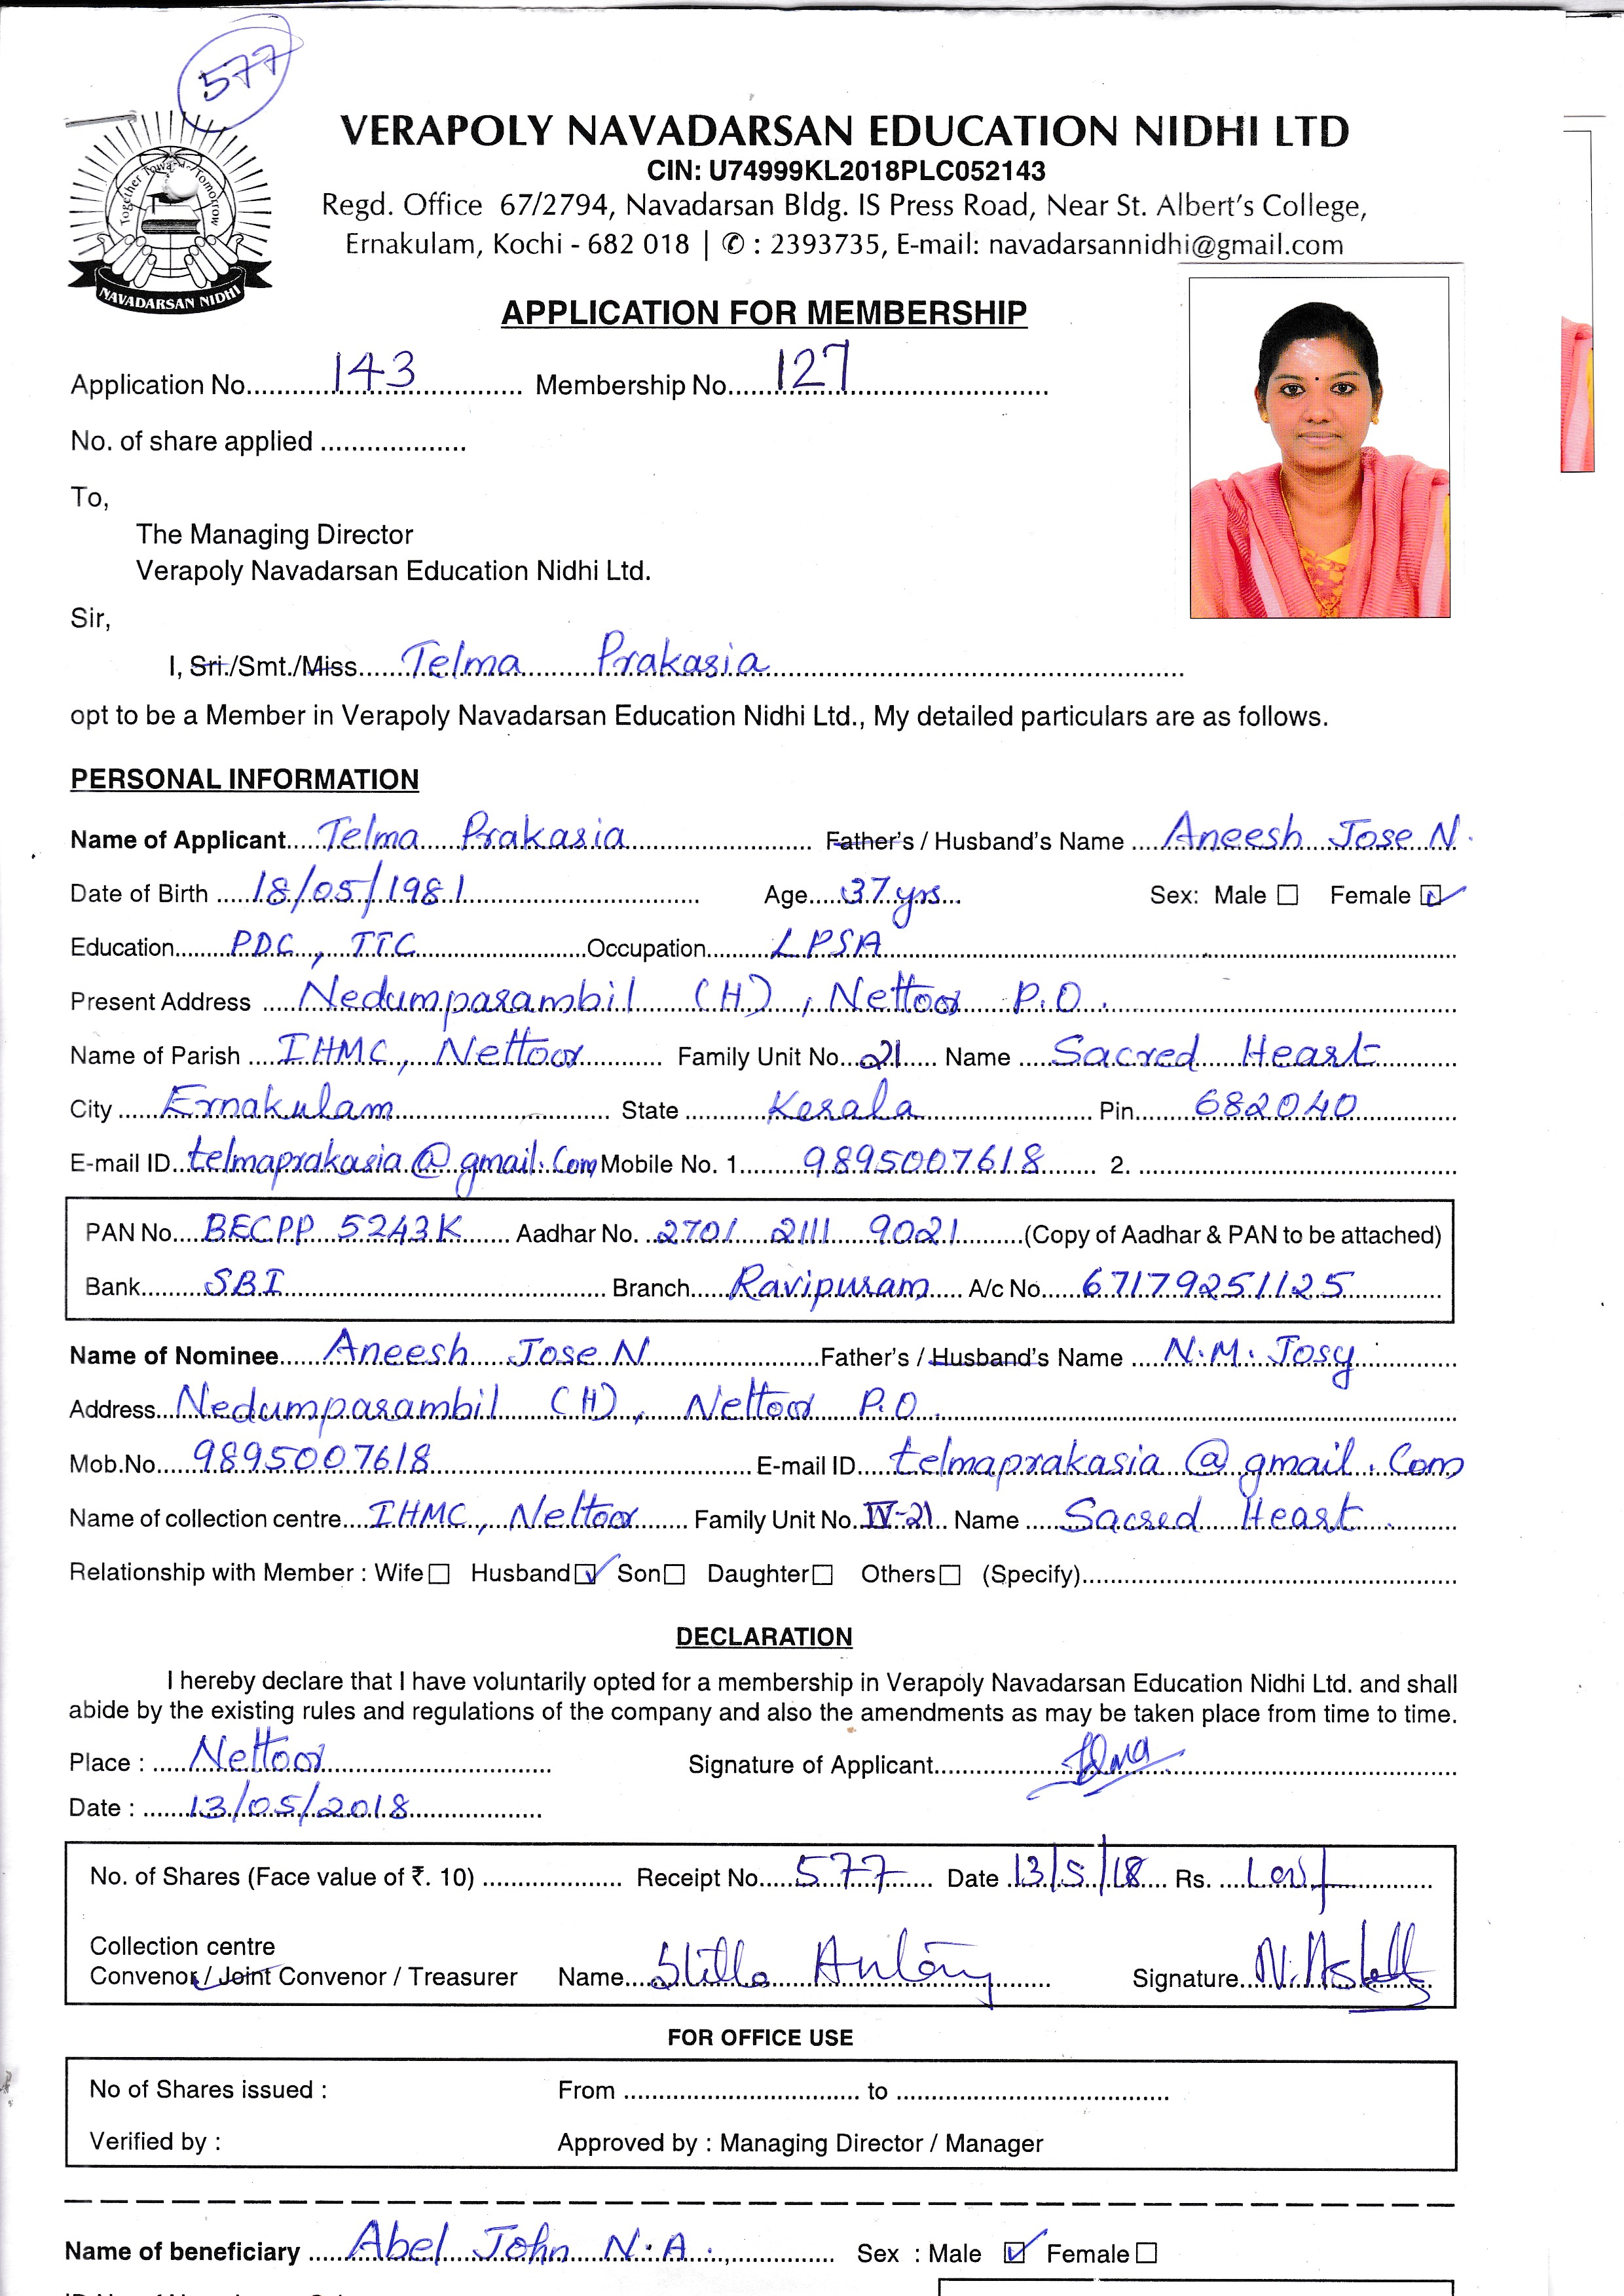 577
Together Towards Tomorrow
NAVADARSAN NIDHI
VERAPOLY NAVADARSAN EDUCATION NIDHI LTD
CIN: U74999KL2018PLC052143
Regd. Office 67/2794, Navadarsan Bldg. IS Press Road, Near St. Albert's College,
Ernakulam, Kochi - 682 018 | ✆ : 2393735, E-mail: navadarsannidhi@gmail.com
APPLICATION FOR MEMBERSHIP
Application No. 143 Membership No. 127
No. of share applied ..................
To,
The Managing Director
Verapoly Navadarsan Education Nidhi Ltd.
Sir,
I, Sri./Smt./Miss. Telma Prakasia
opt to be a Member in Verapoly Navadarsan Education Nidhi Ltd., My detailed particulars are as follows.
PERSONAL INFORMATION
Name of Applicant Telma Prakasia Father's / Husband's Name Aneesh Jose N.
Date of Birth 18/05/1981 Age 37 yrs Sex: Male ☐ Female ☑
Education PDC, TTC Occupation LPSA
Present Address Nedumparambil (H), Nettoor P.O.
Name of Parish IHMC, Nettoor Family Unit No. 21 Name Sacred Heart
City Ernakulam State Kerala Pin 682040
E-mail ID telmaprakasia@gmail.com Mobile No. 1. 9895007618 2.
PAN No. BECPP 5243K Aadhar No. 2701 2111 9021 (Copy of Aadhar & PAN to be attached)
Bank SBI Branch Ravipuram A/c No. 67179251125
Name of Nominee Aneesh Jose N Father's / Husband's Name N.M. Josy
Address Nedumparambil (H), Nettoor P.O.
Mob.No. 9895007618 E-mail ID telmaprakasia@gmail.com
Name of collection centre IHMC, Nettoor Family Unit No. IV-21 Name Sacred Heart
Relationship with Member : Wife ☐ Husband ☑ Son ☐ Daughter ☐ Others ☐ (Specify)
DECLARATION
I hereby declare that I have voluntarily opted for a membership in Verapoly Navadarsan Education Nidhi Ltd. and shall
abide by the existing rules and regulations of the company and also the amendments as may be taken place from time to time.
Place : Nettoor Signature of Applicant
Date : 13/05/2018
No. of Shares (Face value of ₹. 10) Receipt No. 577 Date 13/5/18 Rs.
Collection centre
Convenor / Joint Convenor / Treasurer Name Stilla Antony Signature
FOR OFFICE USE
No of Shares issued : From to
Verified by : Approved by : Managing Director / Manager
Name of beneficiary Abel John N.A. Sex : Male ☑ Female ☐